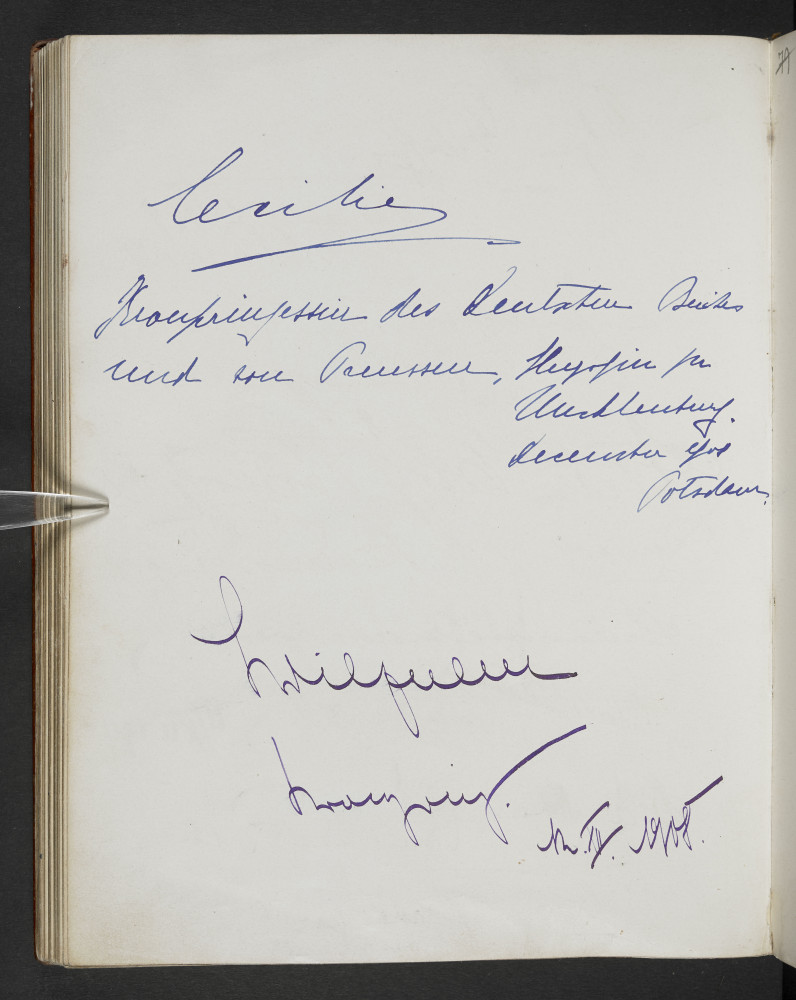 79
Cecilie
Kronprinzessin des Deutschen Reiches
und von Preussen, Herzogin zu
Mecklenburg.
December 1908
Potsdam.
Wilhelm
Kronprinz.
12. IV. 1908.